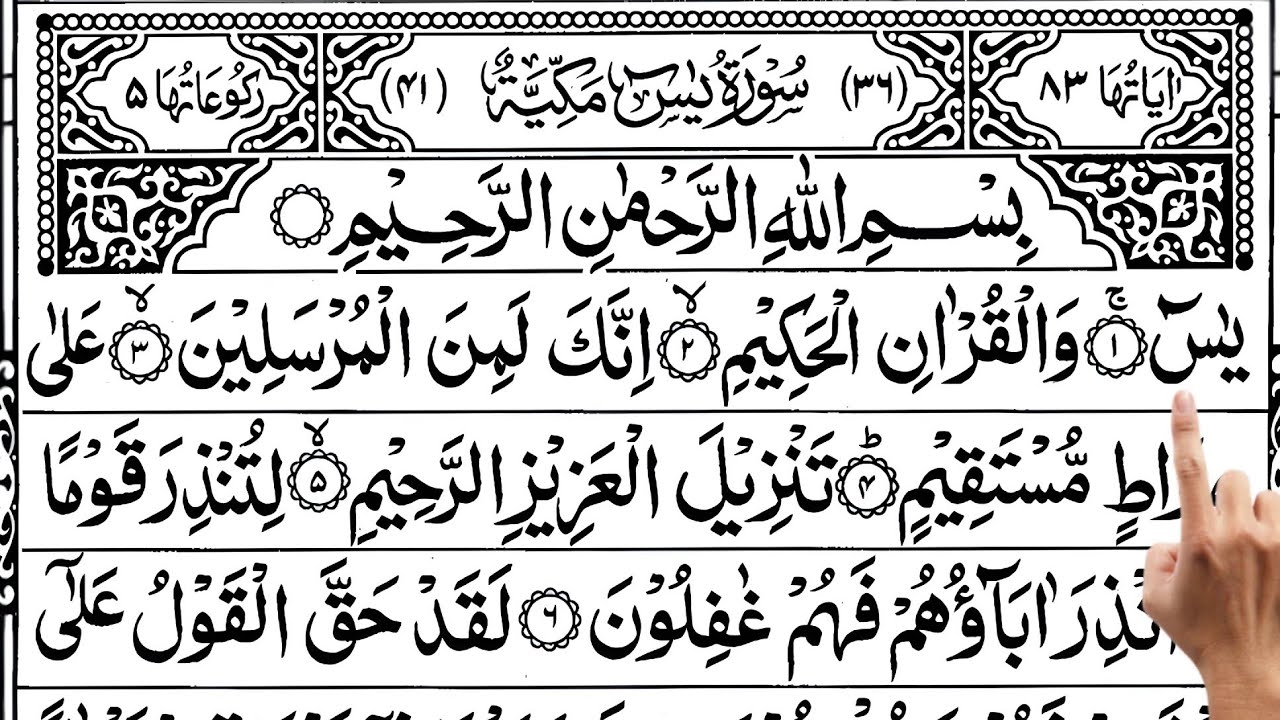 اٰیَاتُهَا ۸۳ (۳۶) سُوْرَةُ یٰسٓ مَكِّیَّةٌ (۴۱) رُكُوْعَاتُهَا ۵
بِسْمِ اللّٰهِ الرَّحْمٰنِ الرَّحِیْمِ
یٰسٓ ۚ ۱ وَالْقُرْاٰنِ الْحَكِیْمِ ۙ ۲ اِنَّكَ لَمِنَ الْمُرْسَلِیْنَ ۙ ۳ عَلٰی
رَاطٍ مُّسْتَقِیْمٍ ؕ ۴ تَنْزِیْلَ الْعَزِیْزِ الرَّحِیْمِ ۙ ۵ لِتُنْذِرَ قَوْمًا
اُنْذِرَ اٰبَآؤُهُمْ فَهُمْ غٰفِلُوْنَ ۶ لَقَدْ حَقَّ الْقَوْلُ عَلٰۤی